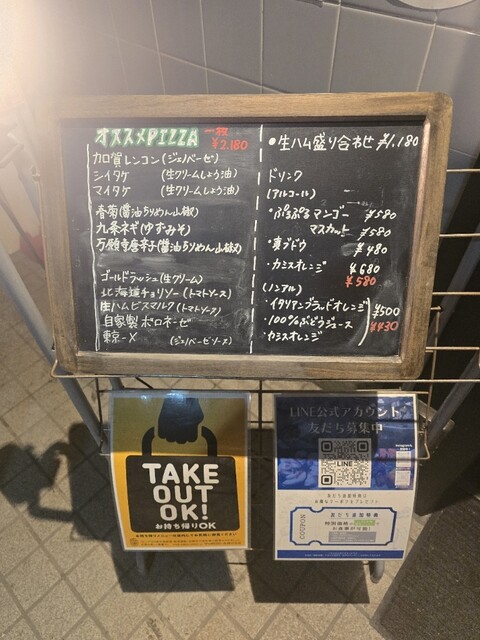 オススメPIZZA 一枚 ¥2,180
加賀レンコン(ジェノベーゼ)
シイタケ (生クリームしょう油)
マイタケ (生クリームしょう油)
春菊(醤油ちりめん山椒)
九条ネギ(ゆずみそ)
万願寺唐辛子(醤油ちりめん山椒)
ゴールドラッシュ(生クリーム)
北海道チョリソー(トマトソース)
生ハムビスマルク(トマトソース)
自家製ボロネーゼ
東京-X (ジェノベーゼソース)
・生ハム盛り合わせ ¥1,180
ドリンク
(アルコール)
・ぷるぷるマンゴー ¥580
マスカット ¥580
・ ブドウ ¥480
・カシスオレンジ ¥680
¥580
(ノンアル)
・イタリアンブラッドオレンジ ¥500
・100%ぶどうジュース ¥430
・カシスオレンジ
TAKE
OUT
OK!
お持ち帰りOK
LINE公式アカウント
友だち募集中
LINE
友だち追加特典は
COUPON
友だち追加特典